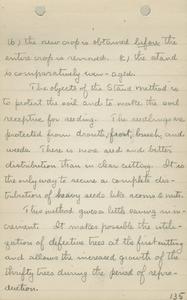 b) the new crop is obtained before the
entire crop is removed. c) the stand
is comparatively even-aged.
The objects of the Stand method is
to protect the soil and to make the soil
receptive for seeding. The seedlings are
protected from drouth, frost, brush, and
weeds. There is more seed and better
distribution than in clear cutting. It is
the only way to secure a complete dis-
tribution of heavy seeds like acorns & nuts.
This method gives a little saving in-
crement. It makes possible the utili-
zation of defective trees at the first cutting
and allows the increased growth of the
thrifty trees during the period of repro-
duction.
135